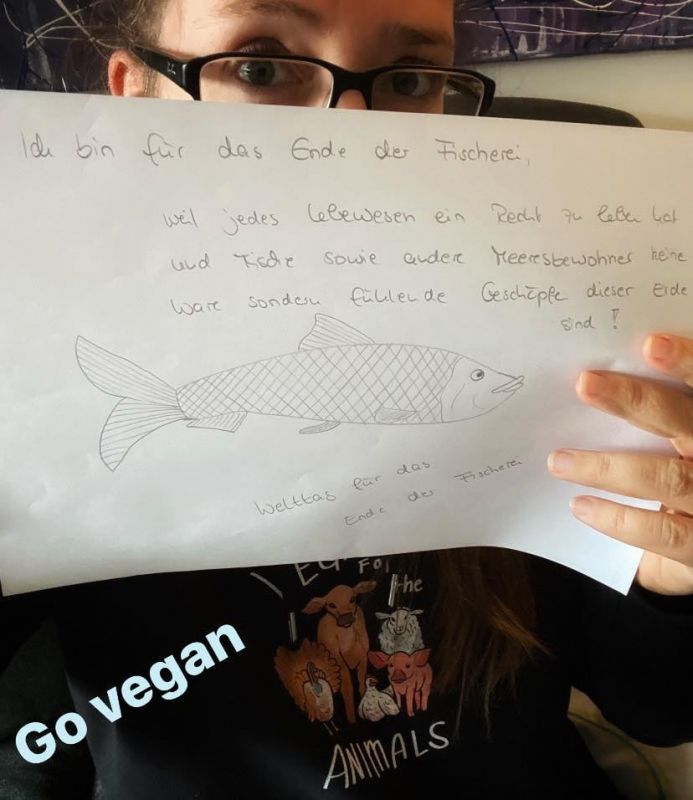 Ich bin für das Ende der Fischerei,
weil jedes Lebewesen ein Recht zu leben hat
und Fische sowie andere Meeresbewohner keine
Ware sondern fühlende Geschöpfe dieser Erde
sind!
Welttag für das
Ende der Fischerei
FOR
the
ANIMALS
Go vegan